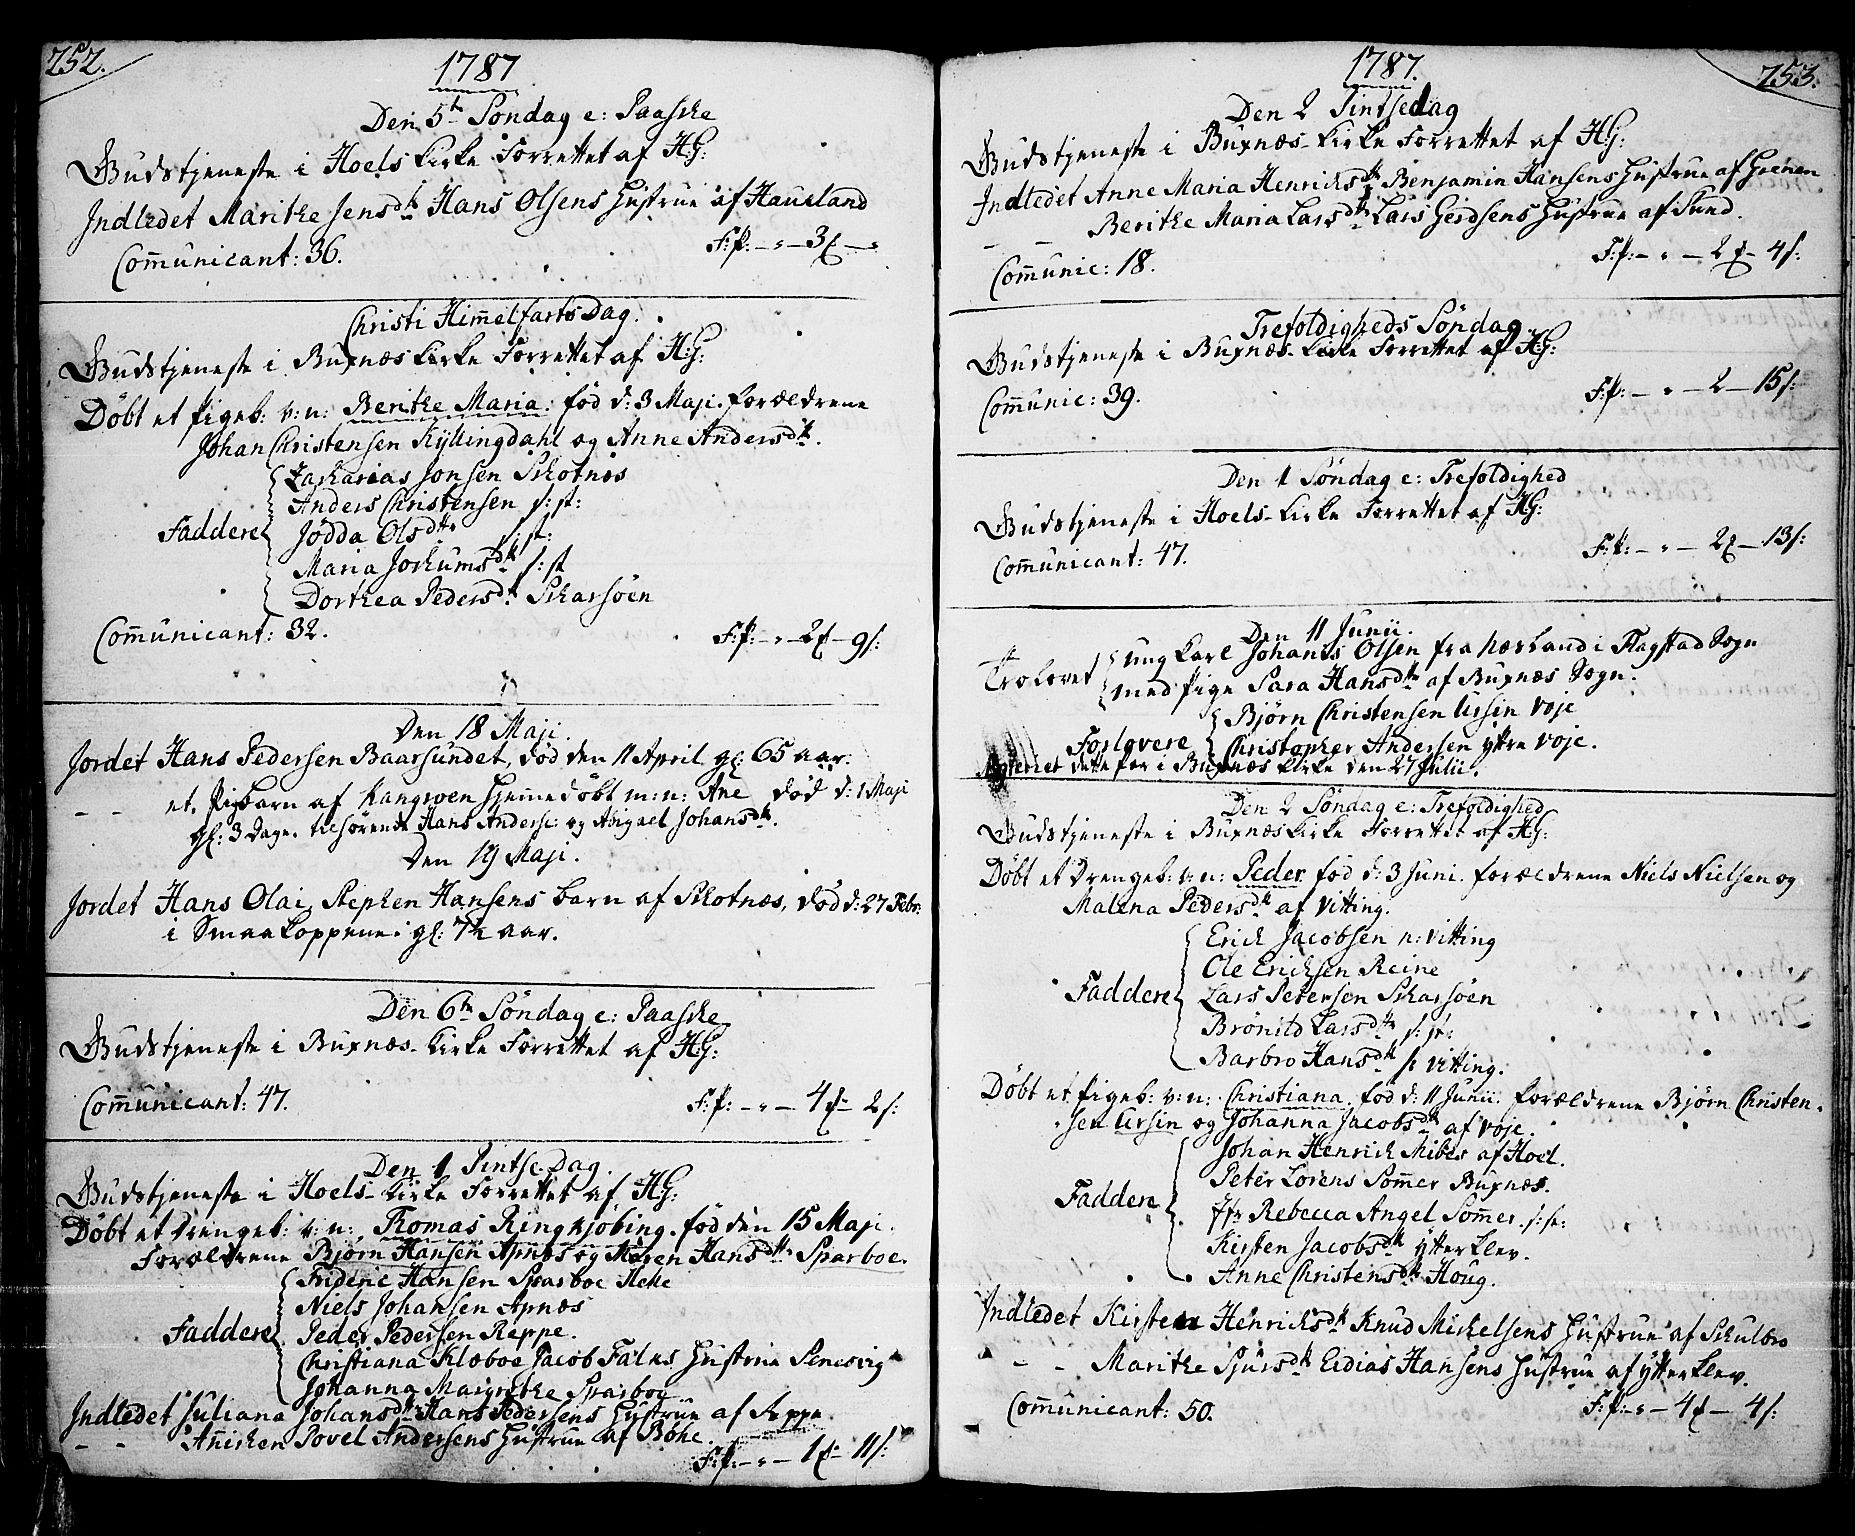 252.
1787
Den 5te Söndag e: Paaske
Gudstjeneste i Hoels Kirke Forrettet af H:G:
Indledet Marithe Jensdtr Hans Olsens Hustrue af Haueland
Communicant: 36. F:P: – " – 3 – "
Christi Himmelfarts Dag.
Gudstjeneste i Buxnæs Kirke Forrettet af H:G:
Döbt et Pigeb: v: n: Berithe Maria. fød d: 3 Maji. Forældrene
Johan Christensen Kyllingdahl og Anne Andersdtr.
Zacharias Jonsen Skotnæs
Anders Christensen s: st:
Faddere Jodda Olsdtr s: st:
Maria Jochumsdtr s: st
Dorthea Pedersdtr Skarsöen
Communicant: 32. F:P: – " – 2 – 9 s:
Den 18 Maji.
Jordet Hans Pedersen Baarsundet, död den 11 April gl: 65 aar.
– – et Pigebarn af Kangwen hjemmedöbt m: n: Ane död d: 1 Maji
gl: 3 Dage. tilhörende Hans Anderse: og Abigael Johansdtr.
Den 19 Maji.
Jordet Hans Olai, Stephen Hansens barn af Skotnæs, död d: 27 Febr:
i Smaa Koppene: gl: 7½ aar.
Den 6te Söndag e: Paaske
Gudstjeneste i Buxnæs Kirke Forrettet af H:G:
Communicant: 47. F:P: – " – 4 – 2 s:
Den 1 Pintse Dag.
Gudstjeneste i Hoels Kirke Forrettet af H:G:
Döbt et Drengeb: v: n: Thomas Ringkjöbing. fød den 15 Maji.
Forældrene Bjørn Hansen Apnæs og Maren Hansdtr Sparboe.
Frideric Hansen Sparboe Helle
Niels Johansen Apnæs
Faddere Peder Pedersen Reppe.
Christiana Klæboe Jacob Falks Hustrue Steensvig
Johanna Margrethe Sparboe
Indledet Juliana Johansdtr Hans Pedersens Hustrue af Reppe
– – Anichen Povel Andersens Hustrue af Böhe.
F:P: – " – 1 – 11 s:
253.
1787.
Den 2 Pintsedag
Gudstjeneste i Buxnæs Kirke Forrettet af H:G:
Indledet Anne Maria Henricksdtr Benjamin Hansens Hustrue af Grenen
– – Berithe Maria Larsdtr Lars Gerdsens Hustrue af Sund.
Communic: 18. F:P: – " – 2 – 4 s:
Trefoldigheds Söndag
Gudstjeneste i Buxnæs Kirke Forrettet af H:G:
Communic: 39. F:P: – " – 2 – 15 s:
Den 1 Söndag e: Trefoldighed
Gudstjeneste i Hoels Kirke Forrettet af H:G:
Communicant: 47. F:P: – " – 2 – 13 s:
Den 11 Junii.
Trolovet ung Karl Johannes Olsen fra Næsland i Flagstad Sogn
med Pige Sara Hansdtr af Buxnæs Sogn.
Forlovere Bjørn Christensen Ursin Voje
Christopher Andersen yttre Voje.
dette par i Buxnæs Kirke den 27 Julii.
Den 2 Söndag e: Trefoldighed
Gudstjeneste i Buxnæs Kirke Forrettet af H:G:
Döbt et Drengeb: v: n: Peder fød d: 3 Juni. Forældrene Niels Nielsen og
Malena Pedersdtr af Vitting.
Erick Jacobsen n: Vitting
Ole Ericksen Reine
Faddere Lars Petersen Skarsöen
Brönild Larsdtr s: st:
Barbro Hansdtr s: Vitting.
Döbt et Pigeb: v: n: Christiana fød d: 11 Junii. Forældrene Bjørn Christen-
sen Ursin og Johanna Jacobsdtr af Voje.
Johan Henrich Mibes af Hoel.
Peter Lorens Sommer Buxnæs.
Faddere Jfr Rebecca Angel Sommer s: st:
Kirsten Jacobsdtr ytterklev.
Anne Christensdtr Houg.
Indledet Kirsten Henricksdtr Knud Mickelsens Hustrue af Skulbro
– – Marithe Sjursdtr Eidias Hansens Hustrue af ytterklev.
Communicant: 50. F:P: – " – 4 – 4 s: